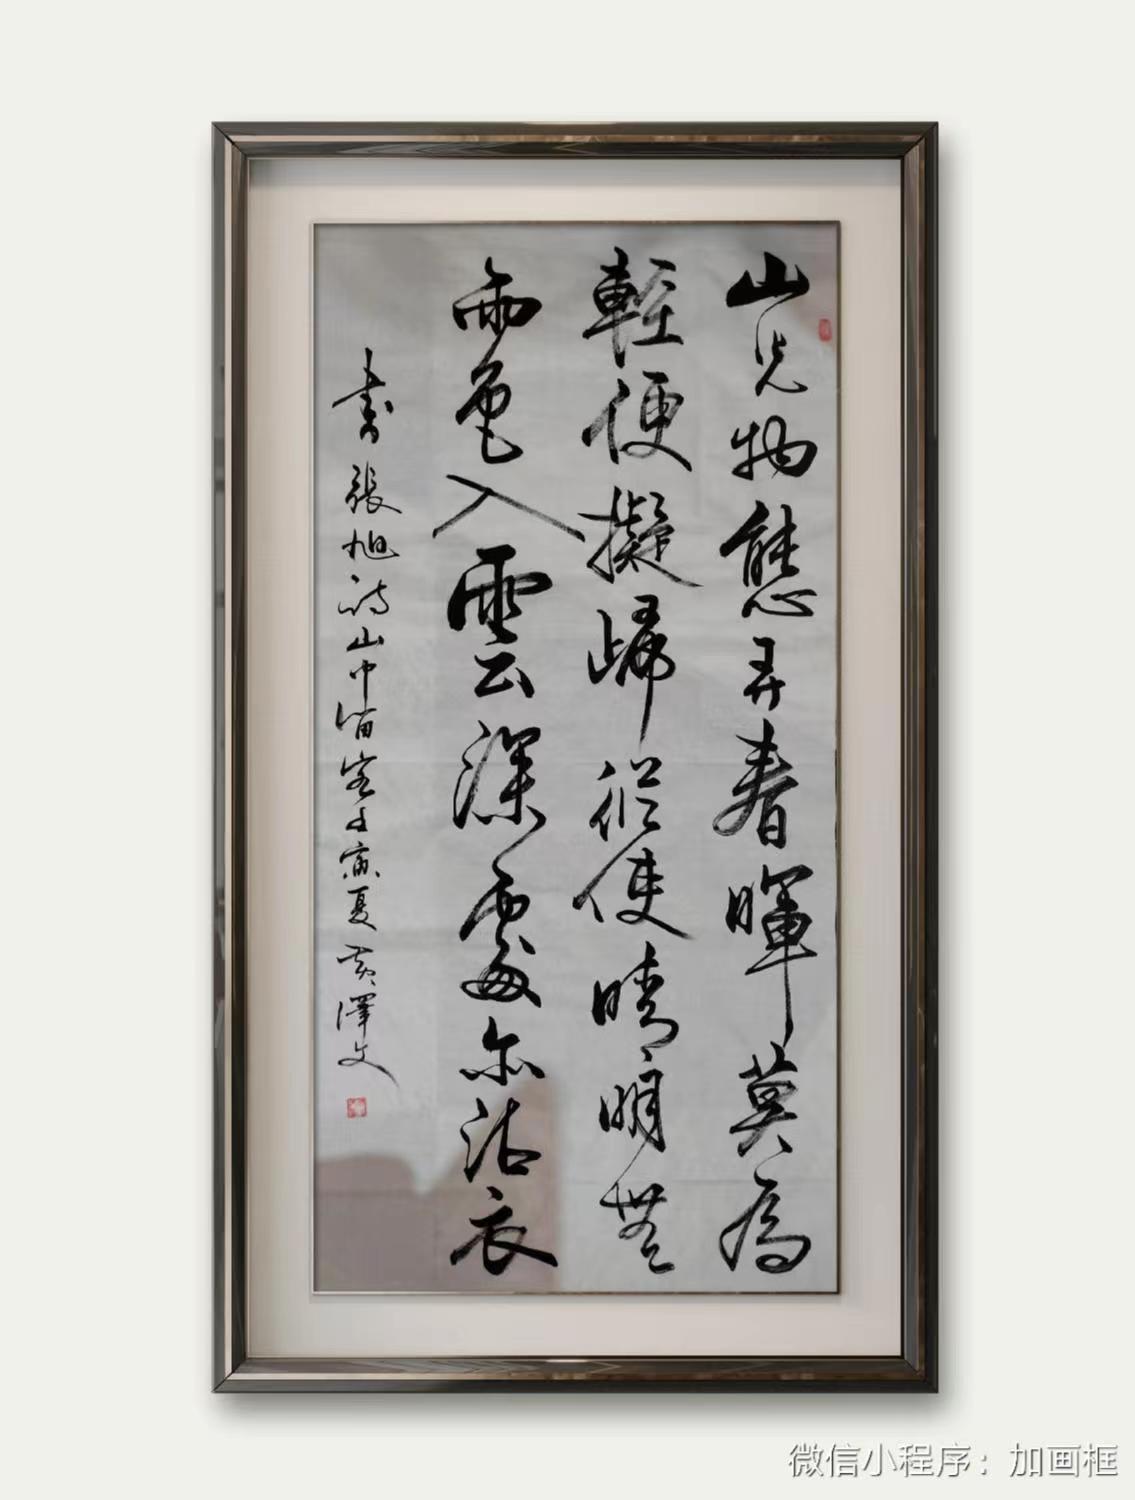 山光物態弄春暉莫為
輕便擬歸從使晴明無
雨色入雲深處亦沾衣
書張旭詩山中留客壬寅夏黄澤文
微信小程序：加画框